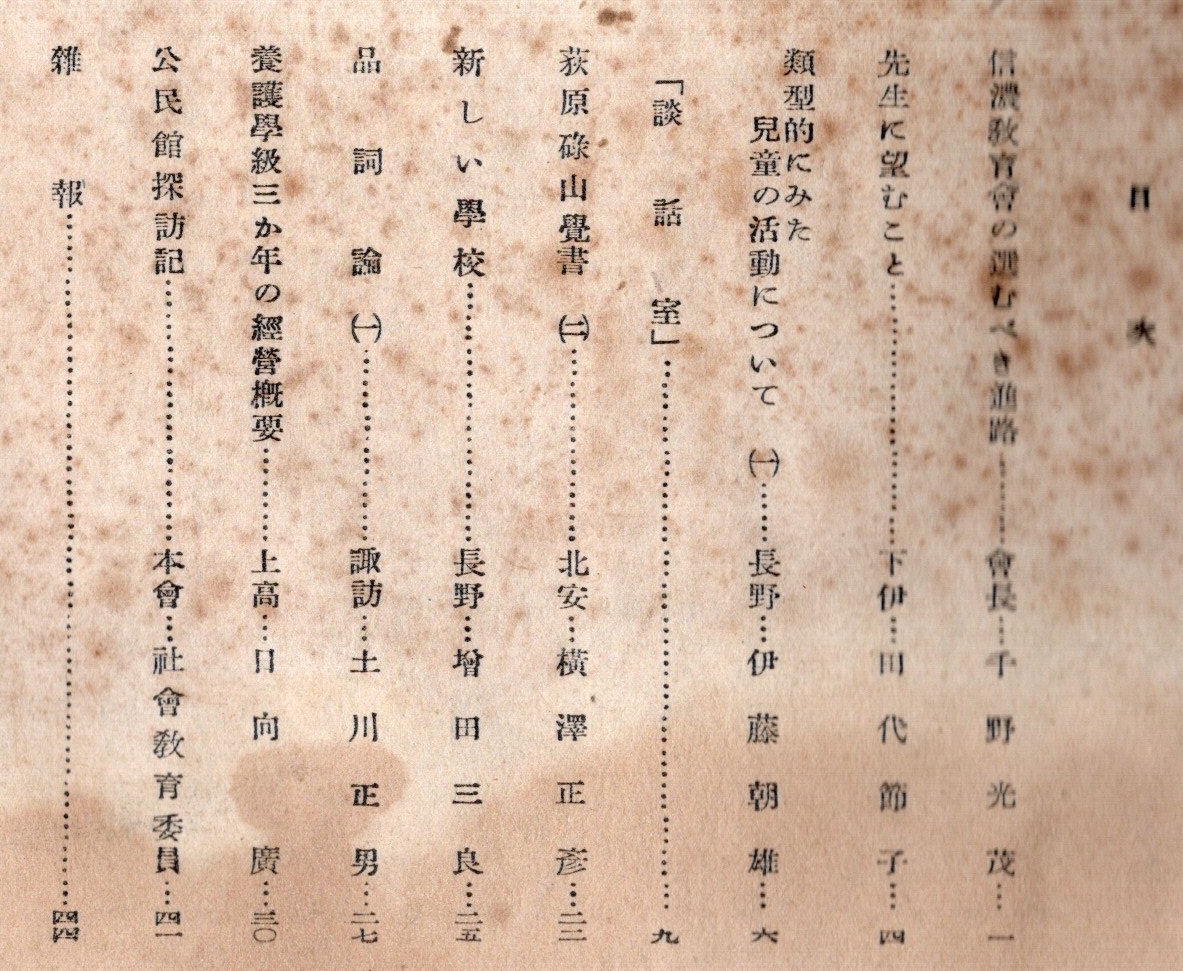 目次
信濃敎育會の選むべき進路………會長…千野光茂…一
先生に望むこと………下伊…田代節子…四
類型的にみた
兒童の活動について㈠……長野…伊藤朝雄…六
「談話室」………九
荻原碌山覺書㈡………北安…橫澤正彥…二二
新しい學校………長野…增田三良…二五
品詞論㈠………諏訪…土川正男…二七
養護學級三か年の經營槪要………上高…日向廣…三〇
公民館探訪記………本會…社會敎育委員…四一
雜報………四四